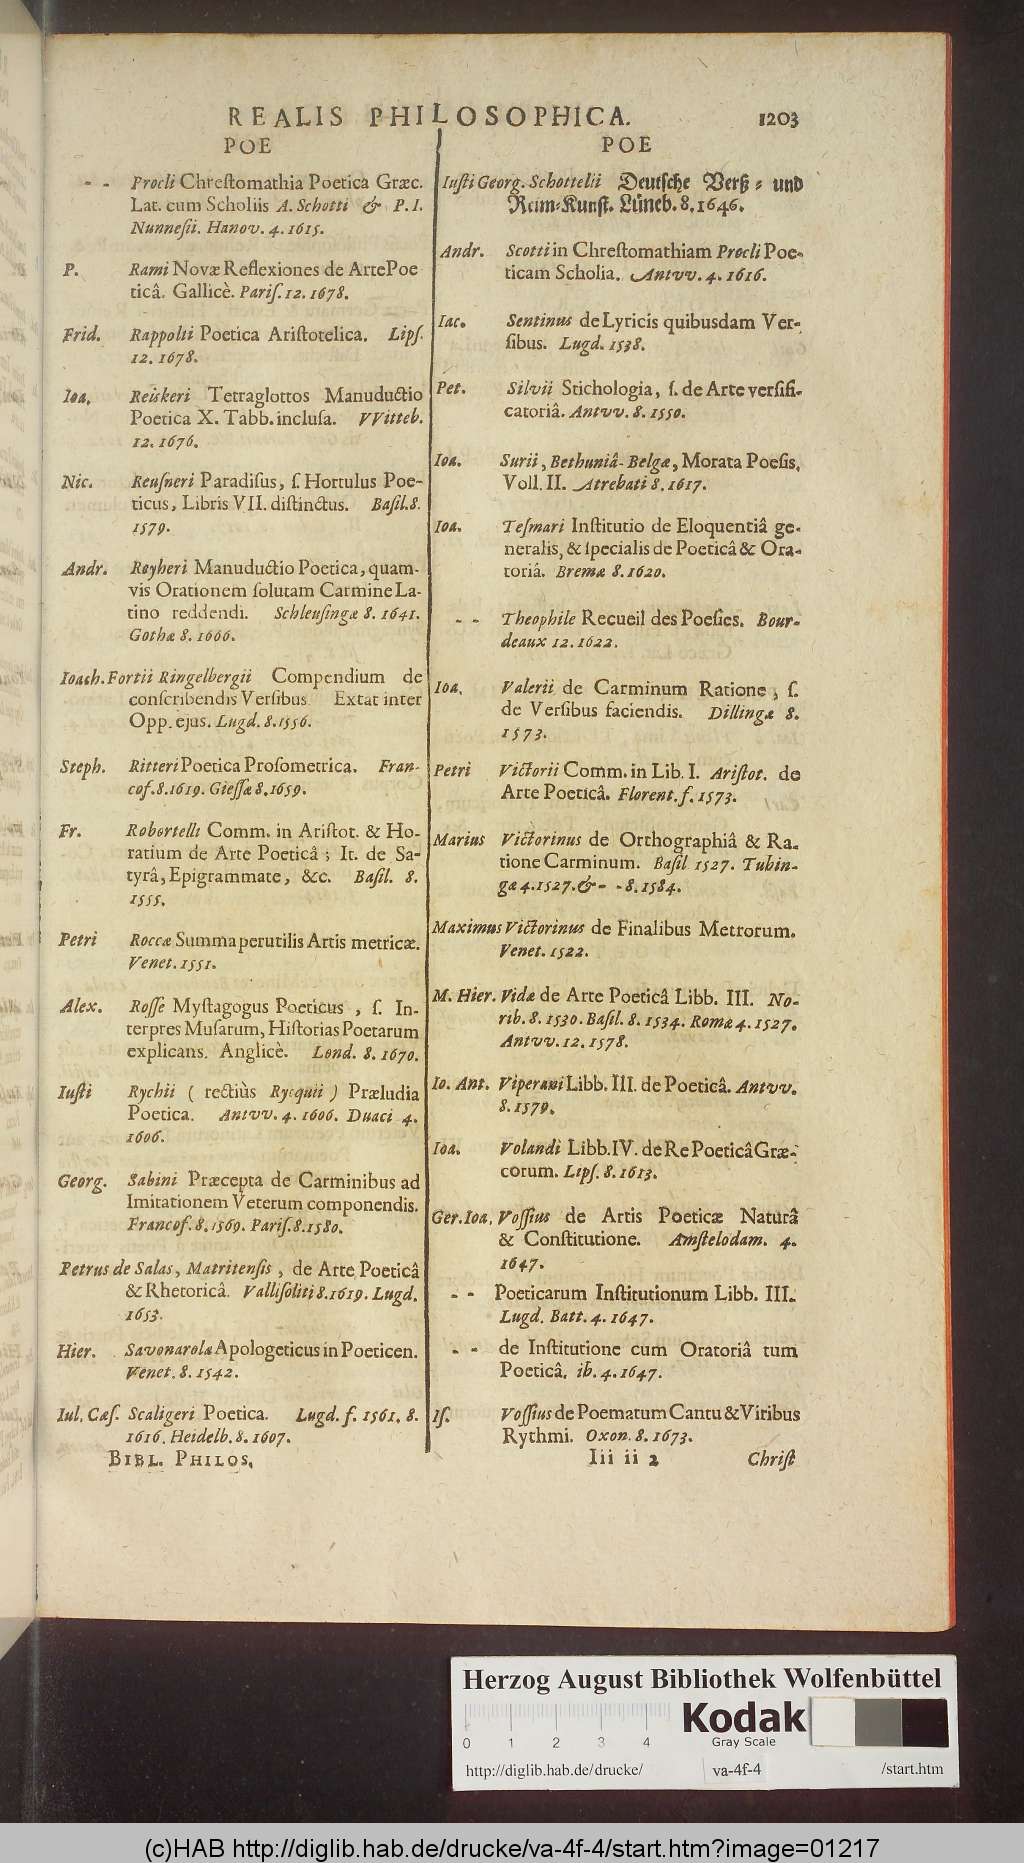 REALIS PHILOSOPHICA. 1203
POE
- - Procli Chreſtomathia Poetica Græc.
Lat. cum Scholiis A. Schotti & P. I.
Nunneſii. Hanov. 4. 1615.
P. Rami Novæ Reflexiones de Arte Poe
ticâ. Gallicè. Pariſ. 12. 1678.
Frid. Rappolti Poetica Ariſtotelica. Lipſ.
12. 1678.
Ioa. Reiskeri Tetraglottos Manuductio
Poetica X. Tabb. incluſa. VVitteb.
12. 1676.
Nic. Reuſneri Paradiſus, ſ. Hortulus Poe-
ticus, Libris VII. diſtinctus. Baſil. 8.
1579.
Andr. Reyheri Manuductio Poetica, quam-
vis Orationem ſolutam Carmine La-
tino reddendi. Schleuſingæ 8. 1641.
Gothæ 8. 1666.
Ioach. Fortii Ringelbergii Compendium de
conſcribendis Verſibus. Extat inter
Opp. ejus. Lugd. 8. 1556.
Steph. Ritteri Poetica Proſometrica. Fran-
cof. 8. 1619. Gieſſæ 8. 1659.
Fr. Robortelli Comm. in Ariſtot. & Ho-
ratium de Arte Poeticâ ; It. de Sa-
tyrâ, Epigrammate, &c. Baſil. 8.
1555.
Petri Roccæ Summa perutilis Artis metricæ.
Venet. 1551.
Alex. Roſſe Myſtagogus Poeticus, ſ. In-
terpres Muſarum, Hiſtorias Poetarum
explicans. Anglicè. Lond. 8. 1670.
Iuſti Rychii ( rectiùs Rycquii ) Præludia
Poetica. Antvv. 4. 1606. Duaci 4.
1606.
Georg. Sabini Præcepta de Carminibus ad
Imitationem Veterum componendis.
Francof. 8. 1569. Pariſ. 8. 1580.
Petrus de Salas, Matritenſis, de Arte Poeticâ
& Rhetoricâ. Valliſoliti 8. 1619. Lugd.
1653.
Hier. Savonarola Apologeticus in Poeticen.
Venet. 8. 1542.
Iul. Cæſ. Scaligeri Poetica. Lugd. f. 1561. 8.
1616. Heidelb. 8. 1607.
BIBL. PHILOS.
POE
Iuſti Georg. Schottelii Deutſche Verß- und
Reim-Kunſt. Lüneb. 8. 1646.
Andr. Scotti in Chreſtomathiam Procli Poe-
ticam Scholia. Antvv. 4. 1616.
Iac. Sentinus de Lyricis quibusdam Ver-
ſibus. Lugd. 1538.
Pet. Silvii Stichologia, ſ. de Arte verſifi-
catoriâ. Antvv. 8. 1550.
Ioa. Surii, Bethuniâ-Belgæ, Morata Poeſis,
Voll. II. Atrebati 8. 1617.
Ioa. Teſmari Inſtitutio de Eloquentiâ ge-
neralis, & ſpecialis de Poeticâ & Ora-
toriâ. Bremæ 8. 1620.
- - Theophile Recueil des Poeſies. Bour-
deaux 12. 1622.
Ioa. Valerii de Carminum Ratione, ſ.
de Verſibus faciendis. Dillingæ 8.
1573.
Petri Victorii Comm. in Lib. I. Ariſtot. de
Arte Poeticâ. Florent. f. 1573.
Marius Victorinus de Orthographiâ & Ra-
tione Carminum. Baſil 1527. Tubin-
gæ 4. 1527. & - - 8. 1584.
Maximus Victorinus de Finalibus Metrorum.
Venet. 1522.
M. Hier. Vidæ de Arte Poeticâ Libb. III. No-
rib. 8. 1530. Baſil. 8. 1534. Romæ 4. 1527.
Antvv. 12. 1578.
Io. Ant. Viperani Libb. III. de Poeticâ. Antvv.
8. 1579.
Ioa. Volandi Libb. IV. de Re Poeticâ Græ-
corum. Lipſ. 8. 1613.
Ger. Ioa. Voſſius de Artis Poeticæ Naturâ
& Conſtitutione. Amſtelodam. 4.
1647.
- - Poeticarum Inſtitutionum Libb. III.
Lugd. Batt. 4. 1647.
- - de Inſtitutione cum Oratoriâ tum
Poeticâ. ib. 4. 1647.
Iſ. Voſſius de Poematum Cantu & Viribus
Rythmi. Oxon. 8. 1673.
Iii ii 2 Chriſt
Herzog August Bibliothek Wolfenbüttel
0 1 2 3 4
Kodak
Gray Scale
http://diglib.hab.de/drucke/ va-4f-4 /start.htm
(c)HAB http://diglib.hab.de/drucke/va-4f-4/start.htm?image=01217